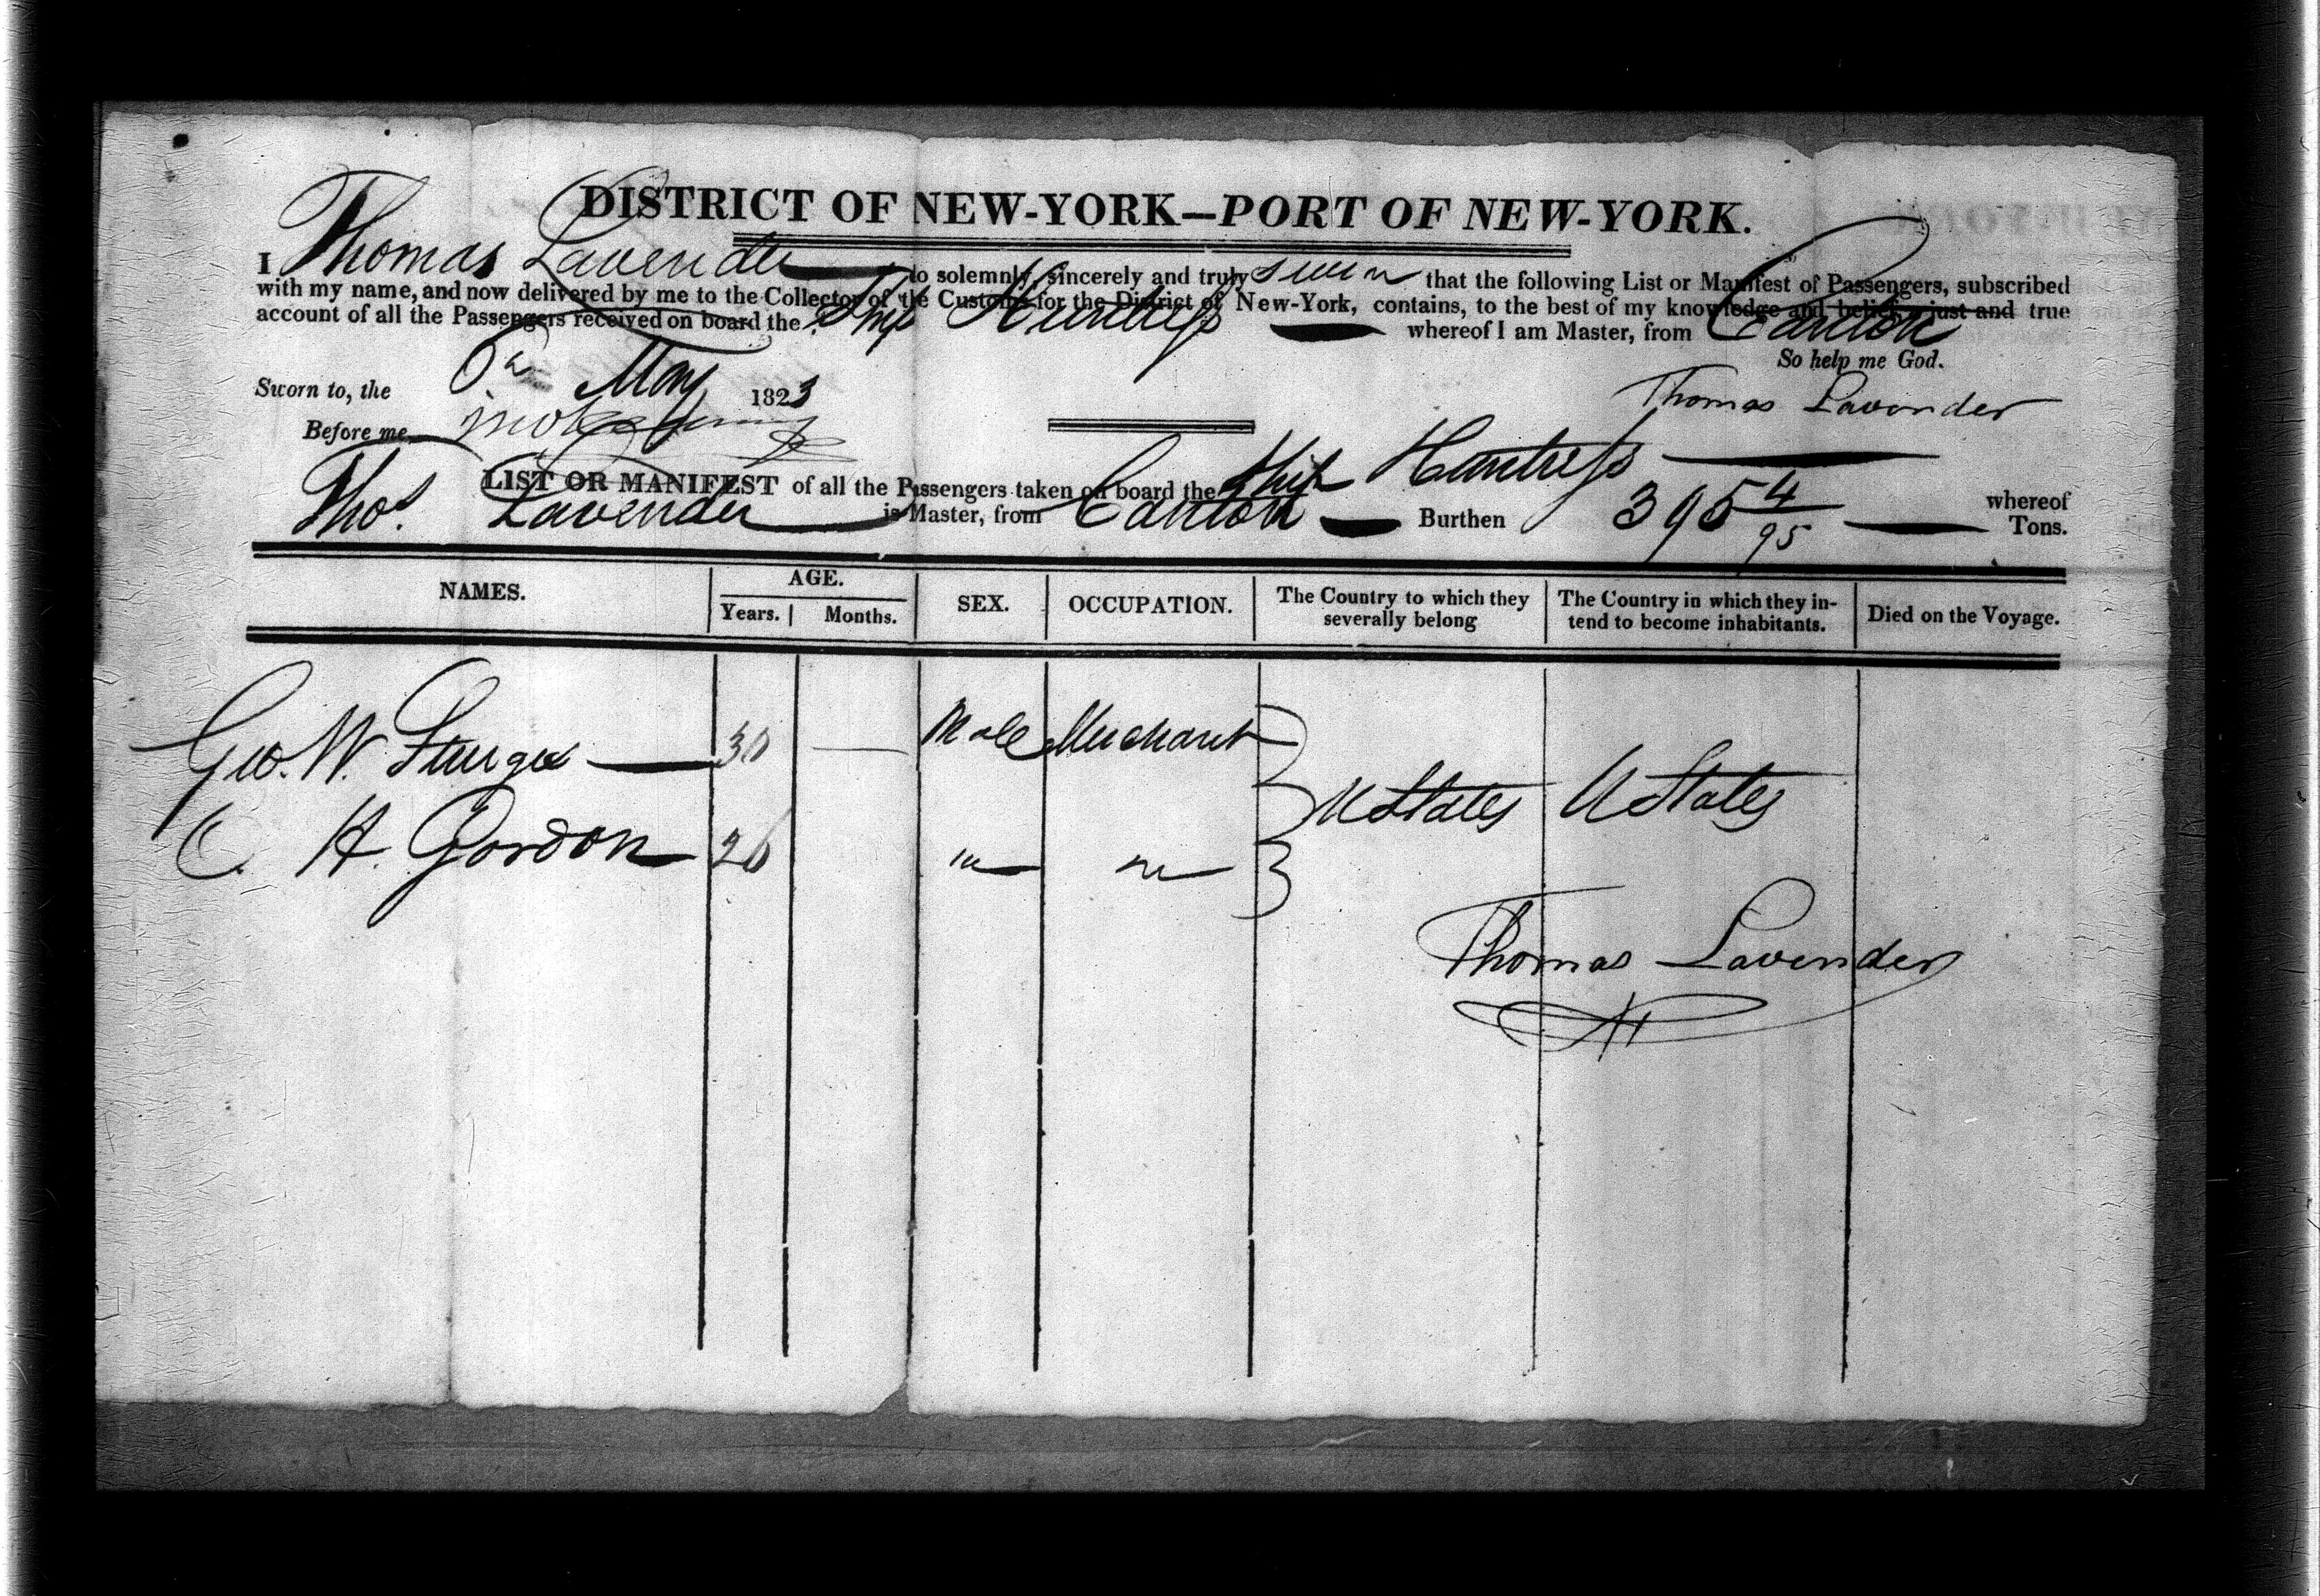 DISTRICT OF NEW-YORK—PORT OF NEW-YORK.
I Thomas Lavender do solemnly, sincerely and truly swear that the following List or Manifest of Passengers, subscribed
with my name, and now delivered by me to the Collector of the Customs for the District of New-York, contains, to the best of my knowledge and belief, a just and true
account of all the Passengers received on board the Ship Huntress whereof I am Master, from Canton
So help me God.
Sworn to, the May 1823
Thomas Lavender
Before me
LIST OR MANIFEST of all the Passengers taken on board the Ship Huntress whereof
Thos. Lavender is Master, from Canton Burthen 395 4/95 Tons.
NAMES. AGE. SEX. OCCUPATION. The Country to which they severally belong The Country in which they in-tend to become inhabitants. Died on the Voyage.
Years. Months.
Geo. W. Sturges 30 — Male Merchant
UStates UStates
C. H. Gordon 26
Thomas Lavender